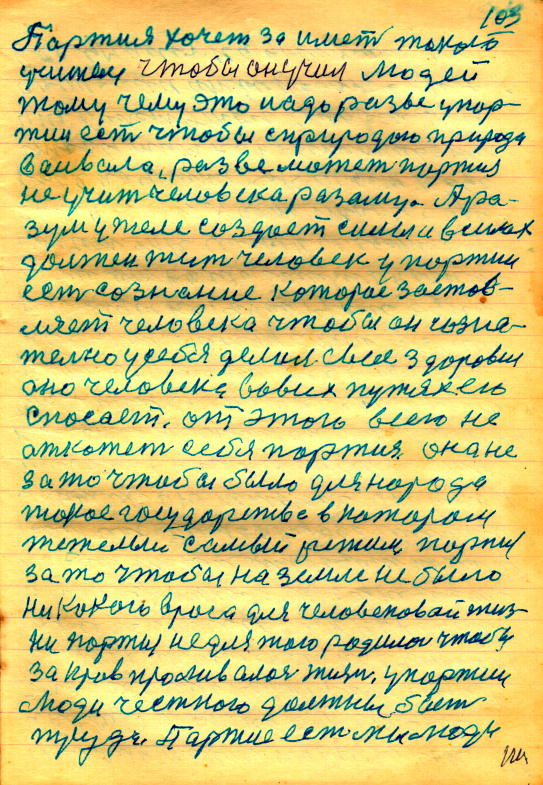 103
Партия хочет заимет токого
учителя чтобы он учил людей
тому чему это надо разве упор-
тии ест чтобы сприродою природа
ваивала, разве может портия
не учит человека разаму. А ра-
зум умеле создает силы а всилах
должен жит человек у портии
ест сознание которое застов-
ляет человека чтобы он созна-
телно усебя делил свое здоровия
оно человека вовсих путях его
спосает. от этого всего не
откажет себя портия она не
зато чтобы было для народа
токое государства в котором
тежелый самый режим, портия
зато чтобы на земле не было
никокого врога для человековай жиз-
ни портия не для того родилас чтобы
за кров проливалас жизн, у портии
люди честного должны быт
труда. Партие ест мы люди